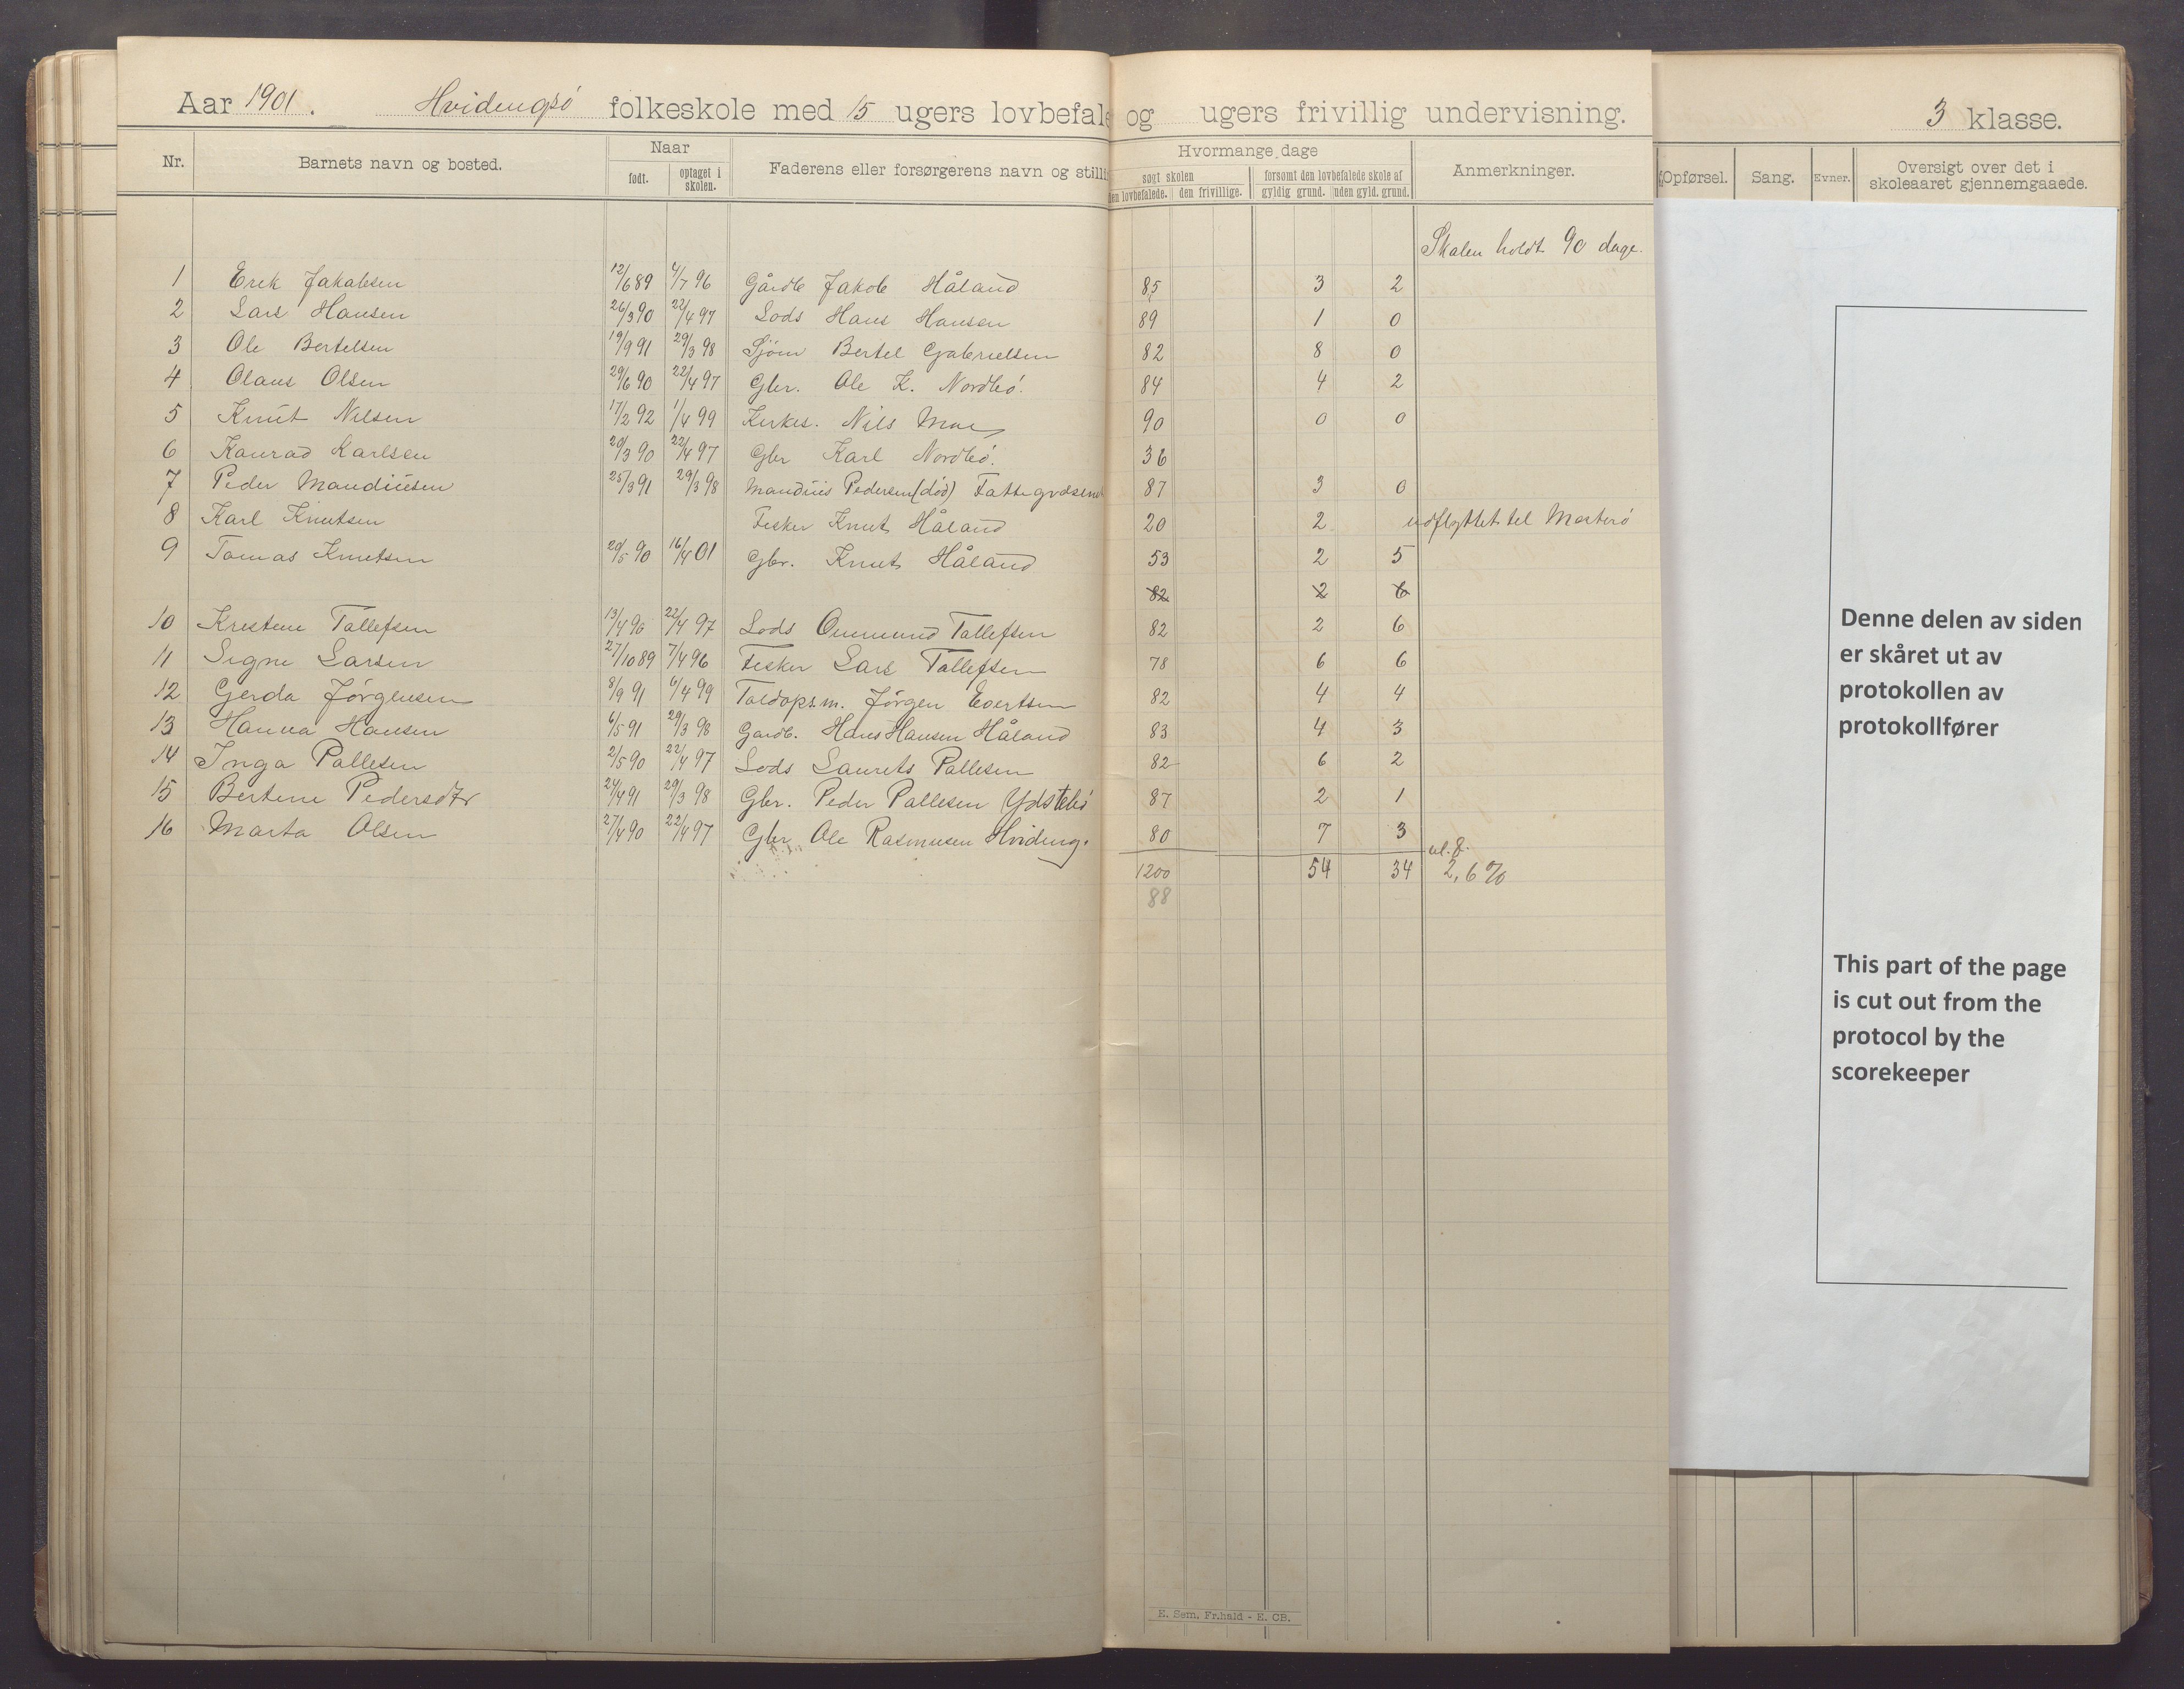 Aar 1901. Hvidingsö folkeskole med 15 ugers lovbefale og ugers frivillig undervisning. 3 klasse.
Nr. Barnets navn og bosted. Naar født. optaget i skolen. Faderens eller forsørgerens navn og stilli Hvormange dage søgt skolen den lovbefalede. den frivillige. forsømt den lovbefalede skole af gyldig grund. uden gyld. grund. Anmerkninger. Opførsel. Sang. Evner. Oversigt over det i skoleaaret gjennemgaaede.
Skolen holdt 90 dage.
1 Erik Jakobsen 12/6 89 4/7 96 Gårdb Jakob Håland 85 3 2
2 Lars Hansen 26/3 90 22/4 97 Lods Hans Hansen 89 1 0
3 Ole Bertelsen 19/9 91 29/3 98 Sjöm Bertel Gabrielsen 82 8 0
4 Olaus Olsen 29/6 90 22/4 97 Gbr. Ole K. Nordbö. 84 4 2
5 Knut Nilsen 17/2 92 1/4 99 Kirkes. Nils Moe 90 0 0
6 Konrad Karlsen 20/3 90 22/4 97 Gbr Karl Nordbö. 36
7 Peder Mandiusen 25/3 91 29/3 98 Mandius Pedersen (död) 87 3 0
8 Karl Knutsen Fisker Knut Håland 20 2 udflyttet til Mosterö
9 Tomas Knutsen 20/5 90 16/4 01 Gbr. Knut Håland 53 2 5
82 2 6
10 Kristine Tollefsen 13/4 90 22/4 97 Lods Ommund Tollefsen 82 2 6
11 Signe Larsen 27/10 89 7/4 96 Fisker Lars Tollefsen 78 6 6
12 Gerda Jörgensen 8/9 91 6/4 99 Toldops.m. Jörgen Evertsen 82 4 4
13 Hanna Hansen 6/5 91 29/3 98 Gardb. Hans Hansen Håland 83 4 3
14 Inga Pallesen 2/5 90 22/4 97 Lods Laurits Pallesen 82 6 2
15 Bertine Pedersdtr 24/4 91 29/3 98 Gbr. Peder Pallesen Ydstebö 87 2 1
16 Marta Olsen 27/4 90 22/4 97 Gbr Ole Rasmusen Hviding. 80 7 3
1200 54 34 2,6 %
88
E. Sem, Fr.hald - E. CB.
Denne delen av siden
er skåret ut av
protokollen av
protokollfører
This part of the page
is cut out from the
protocol by the
scorekeeper